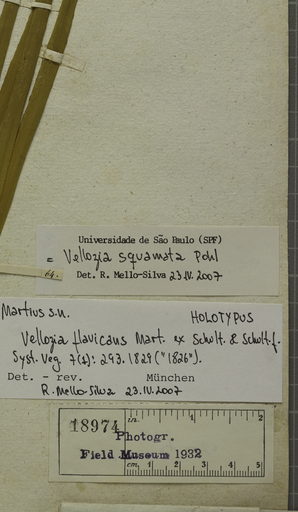 Universidade de São Paulo (SPF)
= Vellozia squamata Pohl
Det. R. Mello-Silva 23.IV.2007
64.
Martius s.n.
HOLOTYPUS
Vellozia flavicans Mart. ex Schult. & Schult.f.
Syst. Veg. 7(2): 293. 1829 ("1826").
Det. - rev. München
R. Mello-Silva 23.IV.2007
18974
in. 1 2
Photogr.
Field Museum 1932
cm. 1 2 3 4 5